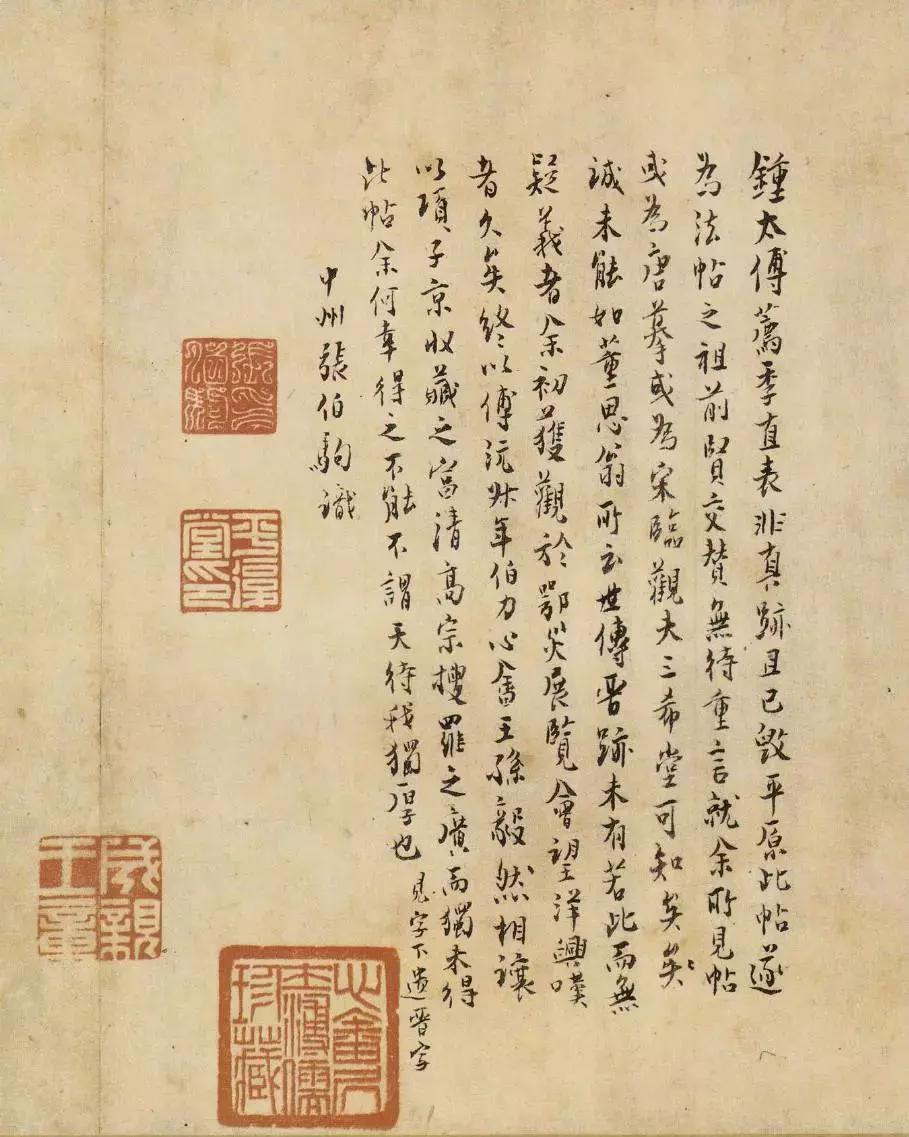 鍾太傅薦季直表非真跡且已毀平原此帖遂
為法帖之祖前賢交贊無待重言就余所見帖
或為唐摹或為宋臨觀夫三希堂可知矣矣
誠未能如董思翁所云世傳晉跡未有若此而無
疑義者余初獲觀於鄂災展覽會望洋興嘆
者久矣終以傅沅叔年伯力心畬王孫毅然相讓
以項子京收藏之富清高宗搜羅之廣而獨未得
此帖余何幸得之不能不謂天待我獨厚也 見字下遺晉字
中州張伯駒識
張印伯駒
平復堂印
成親王章